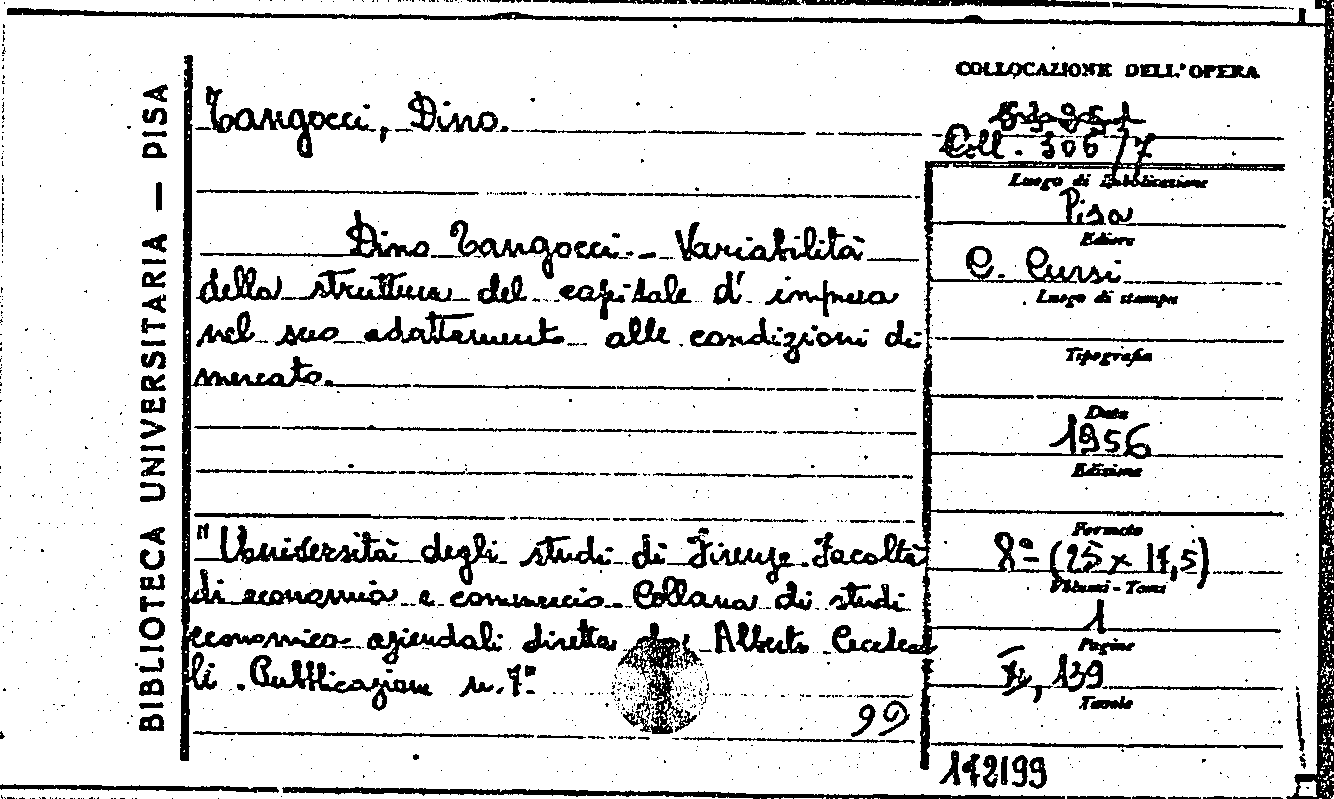 BIBLIOTECA UNIVERSITARIA — PISA
Tangocci, Dino.
Dino Tangocci. - Variabilità
della struttura del capitale d'impresa
nel suo adattamento alle condizioni di
mercato.
"Università degli studi di Firenze. Facoltà
di economia e commercio. Collana di studi
economico-aziendali diretta da Alberto Ceccherel
li. Pubblicazione n. 7º
99
COLLOCAZIONE DELL'OPERA
Coll. 306/7
Luogo di Pubblicazione
Pisa
Editore
C. Cursi
Luogo di stampa
Tipografia
Data
1956
Edizione
Formato
8º (25 x 17,5)
Volumi - Tomi
1
Pagine
139
Tavole
172199